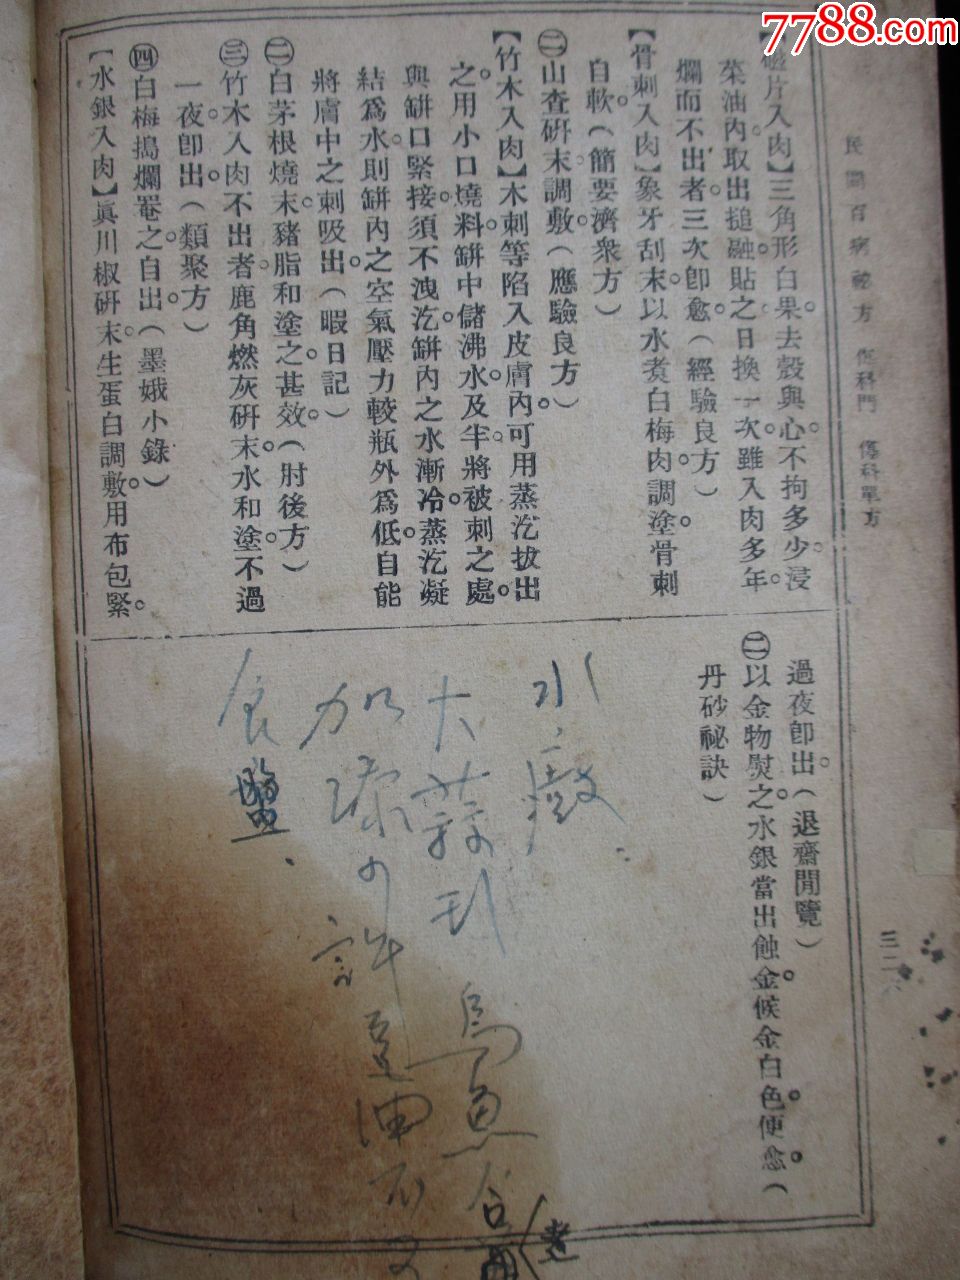 7788.com
民間百病祕方 傷科門 傷科單方
三二
【磁片入肉】三角形白果去殼與心。不拘多少。浸
菜油內。取出搥融貼之。日換一次。雖入肉多年。
爛而不出者。三次卽愈。(經驗良方)
【骨刺入肉】象牙刮末。以水煑白梅肉調塗。骨刺
自軟。(簡要濟衆方)
㊁山查硏末調敷。(應驗良方)
【竹木入肉】木刺等陷入皮膚內。可用蒸汽拔出
之。用小口燒料缾。中儲沸水。及半。將被刺之處。
與缾口緊接。須不洩汽。缾內之水漸冷。蒸汽凝
結爲水。則缾內之空氣壓力。較瓶外爲低。自能
將膚中之刺吸出。(暇日記)
㊁白茅根燒末。豬脂和塗之甚效。(肘後方)
㊂竹木入肉不出者。鹿角燃灰硏末。水和塗。不過
一夜卽出。(類聚方)
㊃白梅搗爛罨之。自出。(墨娥小錄)
【水銀入肉】眞川椒硏末。生蛋白調敷。用布包緊。
過夜卽出。(退齋閒覽)
㊁以金物熨之。水銀當出蝕金。候金白色便愈。(
丹砂祕訣)
水
大蒜
加 少許豆油不
食盬